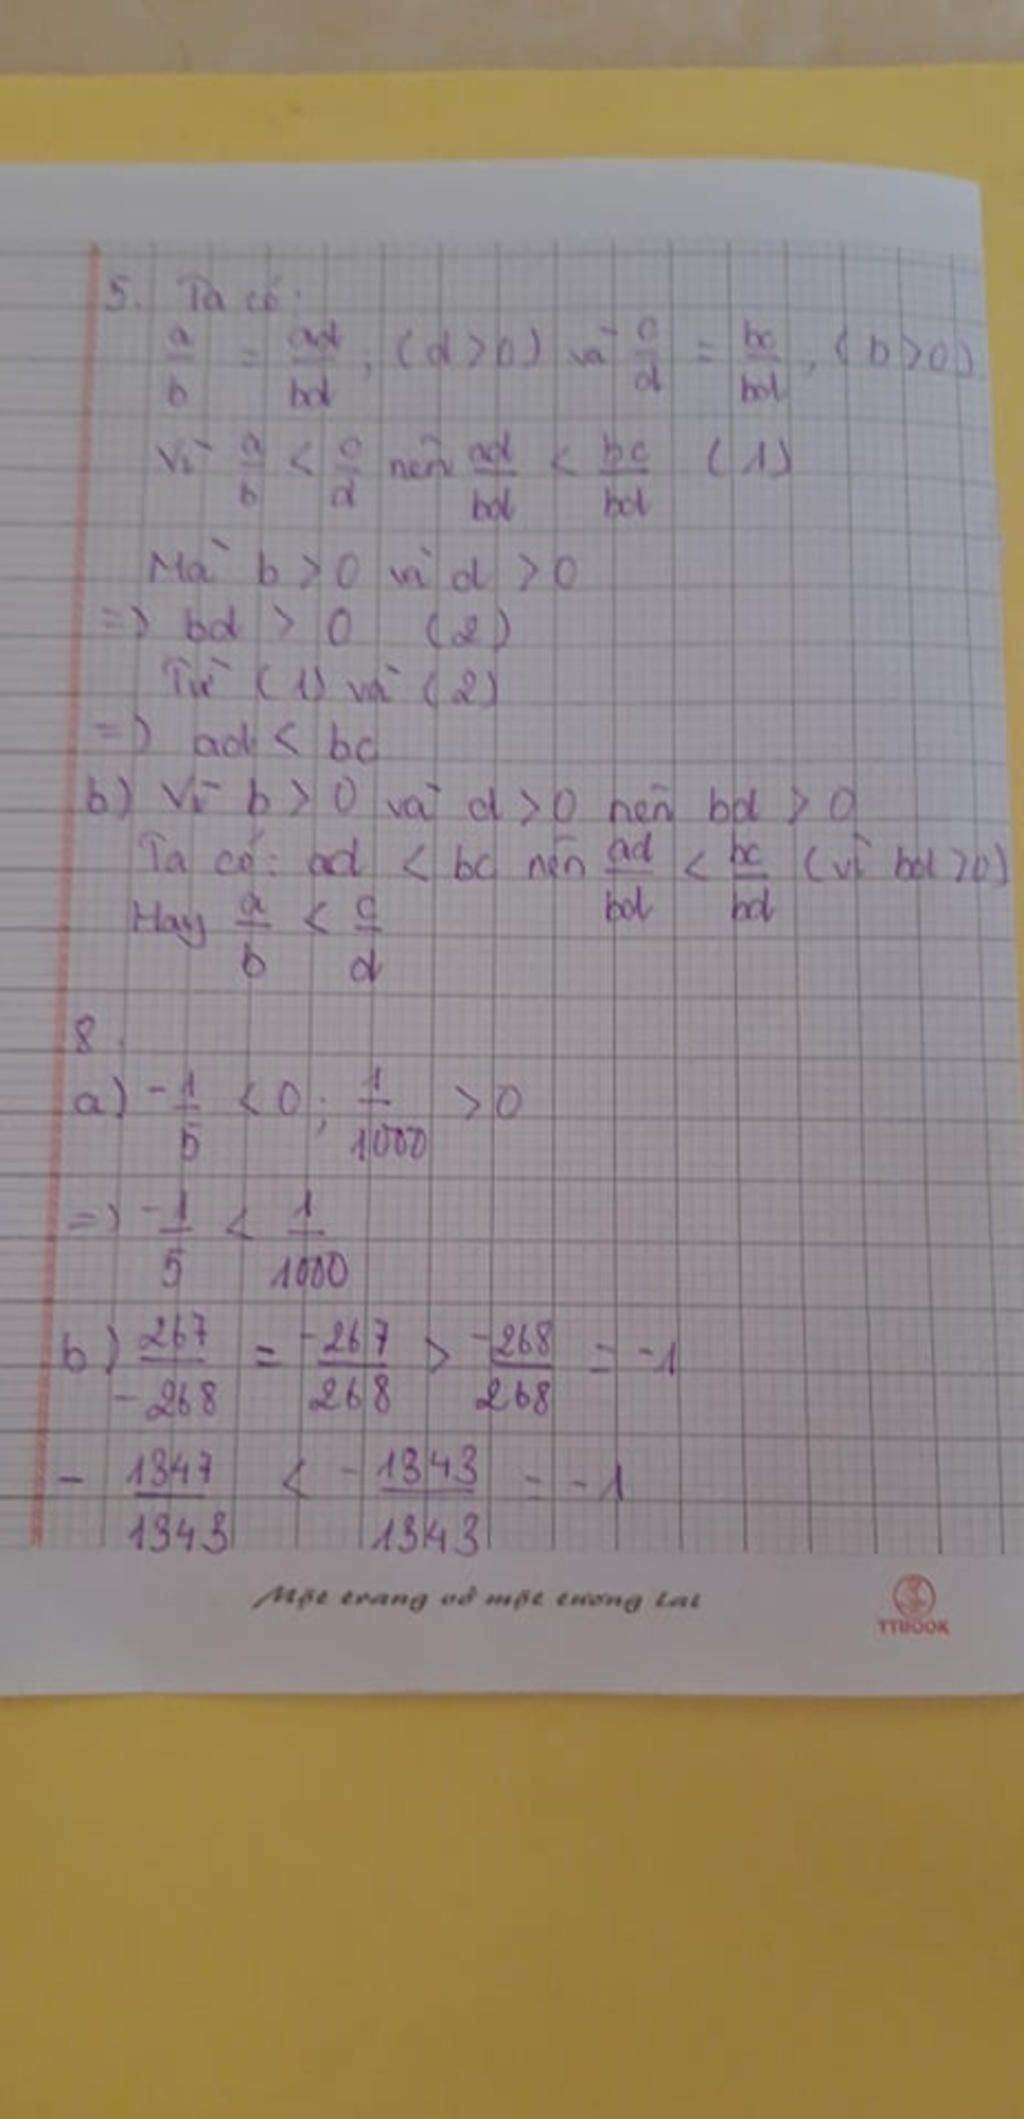 5. Ta có:
a/b = ad/bd, (d > 0) và c/d = bc/bd, (b > 0)
Vì a/b < c/d nên ad/bd < bc/bd (1)
Mà b > 0 và d > 0
=> bd > 0 (2)
Từ (1) và (2)
=> ad < bc
b) Vì b > 0 và d > 0 nên bd > 0
Ta có: ad < bc nên ad/bd < bc/bd (vì bd > 0)
Hay a/b < c/d
8.
a) -1/5 < 0; 1/1000 > 0
=> -1/5 < 1/1000
b) 267/-268 = -267/268 > -268/268 = -1
- 1347/1343 < - 1343/1343 = -1
Một trang vở một tương lai
TTBOOK